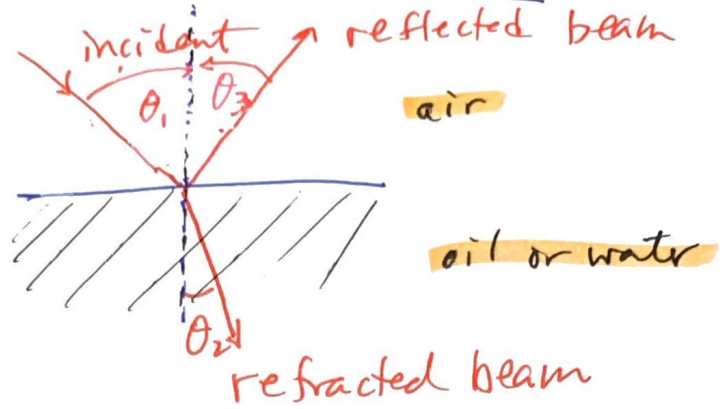 incident
reflected beam
θ₁
θ₃
air
oil or water
θ₂
refracted beam